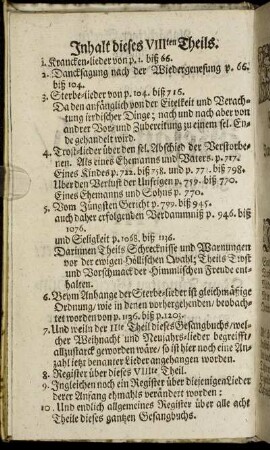 Inhalt dieses VIIIten Theils.
1. Krancken-lieder von p. 1. biß 66.
2. Dancksagung nach der Wiedergenesung p. 66.
biß 104.
3. Sterbe-lieder von p. 104. biß 716.
Da den anfänglich von der Eitelkeit und Verach-
tung irrdischer Dinge; nach und nach aber von
andrer Vor- und Zubereitung zu einem sel. En-
de gehandelt wird.
4. Trost-lieder über den sel. Abschied der Verstorbe-
nen. Als eines Ehemanns und Vaters. p. 717.
Eines Kindes p. 722. biß 758. und p. 77. biß 798.
Uber den Verlust der Unsrigen p. 759. biß 770.
Eines Ehemanns und Sohns p. 770.
5. Vom Jüngsten Gericht p. 799. biß 945.
auch daher erfolgenden Verdammniß p. 946. biß
1076.
und Seligkeit p. 1068. biß 1136.
Darinnen Theils Schrecknisse und Warnungen
vor der ewigen Höllischen Qvahl; Theils Trost
und Vorschmack der Himmlischen Freude ent-
halten.
6. Beym Anhange der Sterbe-lieder ist gleichmäßige
Ordnung, wie in denen vorhergehenden, beobach-
tet worden von p. 1136. biß p. 1203.
7. Und weiln der IIIte Theil dieses Gesangbuchs/ wel-
cher Weihnacht und Neujahrs-lieder begreifft
allzustarck geworden wäre/ so ist hier noch eine An-
zahl letzt benanter Lieder angehangen worden.
8. Register über dieses VIIIte Theil.
9. Ingleichen noch ein Register über diejenigen Lieder
derer Anfang ehmahls verändert worden:
10. Und endlich allgemeines Register über alle acht
Theile dieses gantzen Gesangbuchs.